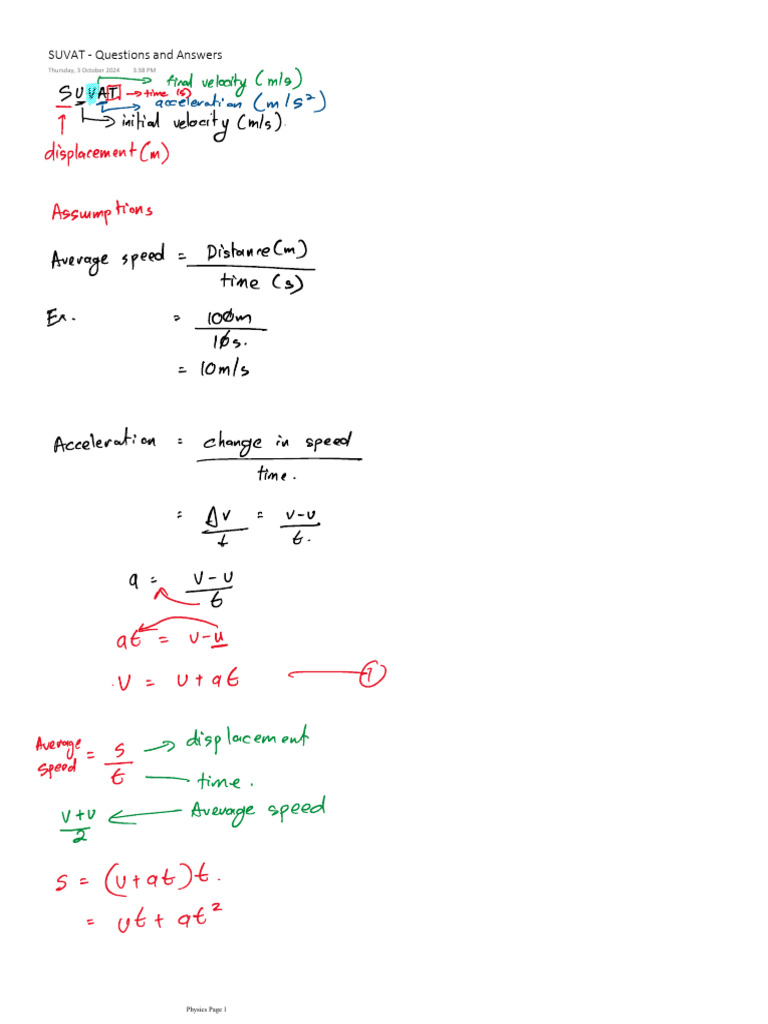 SUVAT - Questions and Answers
Thursday, 3 October 2024 3:38 PM
final velocity (m/s)
SUVAT → time (s)
acceleration (m/s²)
initial velocity (m/s).
displacement (m)
Assumptions
Average speed = Distance (m)
time (s)
Ex. = 100m
10s.
= 10m/s
Acceleration = change in speed
time.
= Δv = v-u
t t.
a = v-u
t
at = v-u
v = u + at ①
Average speed = s → displacement
t time.
v+u ← Average speed
2
s = (u+at)t.
= ut + at²
Physics Page 1